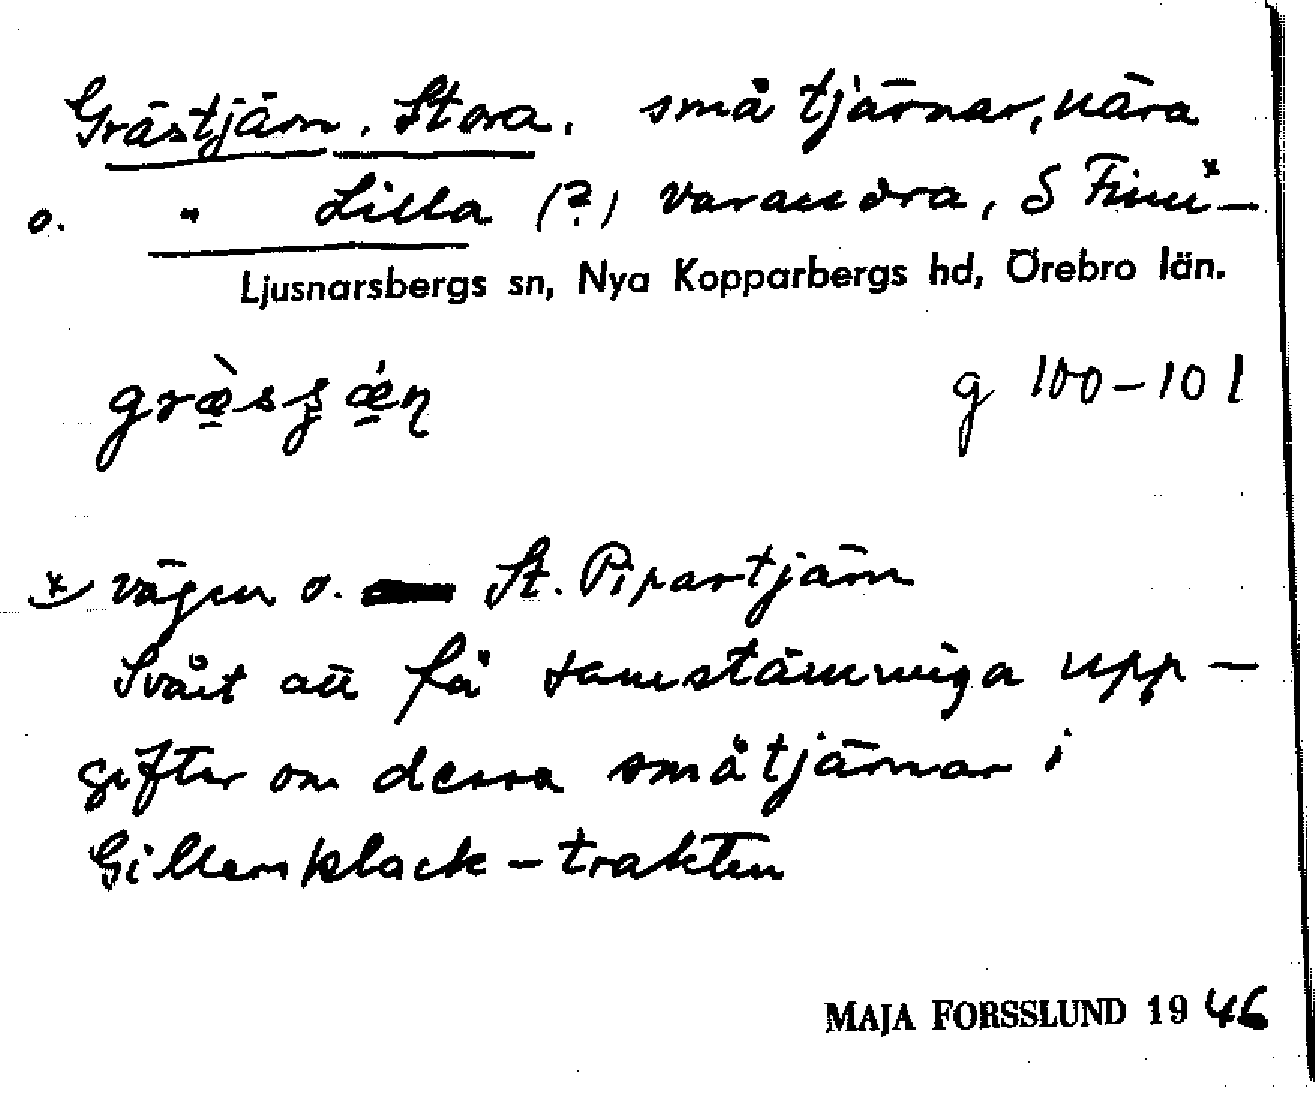 Grästjärn, Stora, små tjärnar, nära
o. " Lilla (?) varandra, S Finn*-
Ljusnarsbergs sn, Nya Kopparbergs hd, Örebro län.
g 100-101
* vägen o. St. Pipartjärn
Svårt att få samstämmiga upp-
gifter om dessa småtjärnar i
Gillersklack-trakten
MAJA FORSSLUND 1946